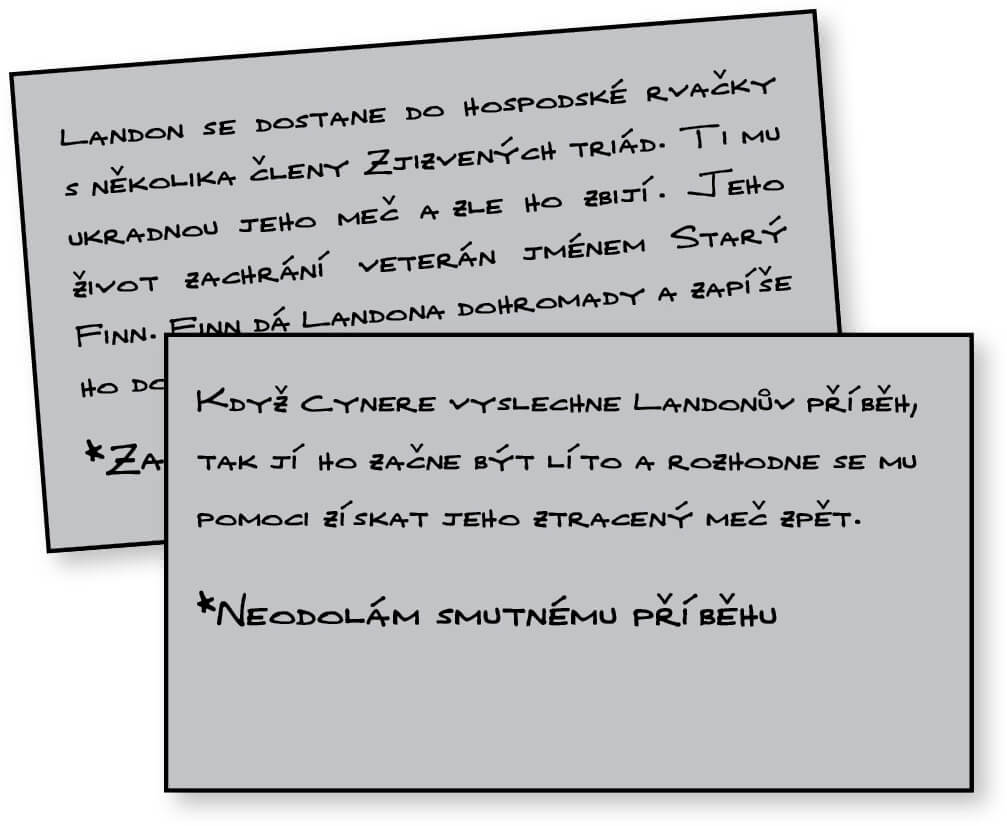 Landon se dostane do hospodské rvačky
s několika členy Zjizvených triád. Ti mu
ukradnou jeho meč a zle ho zbijí. Jeho
život zachrání veterán jménem Starý
Finn. Finn dá Landona dohromady a zapíše
ho do
*Za
Když Cynere vyslechne Landonův příběh,
tak jí ho začne být líto a rozhodne se mu
pomoci získat jeho ztracený meč zpět.
*Neodolám smutnému příběhu